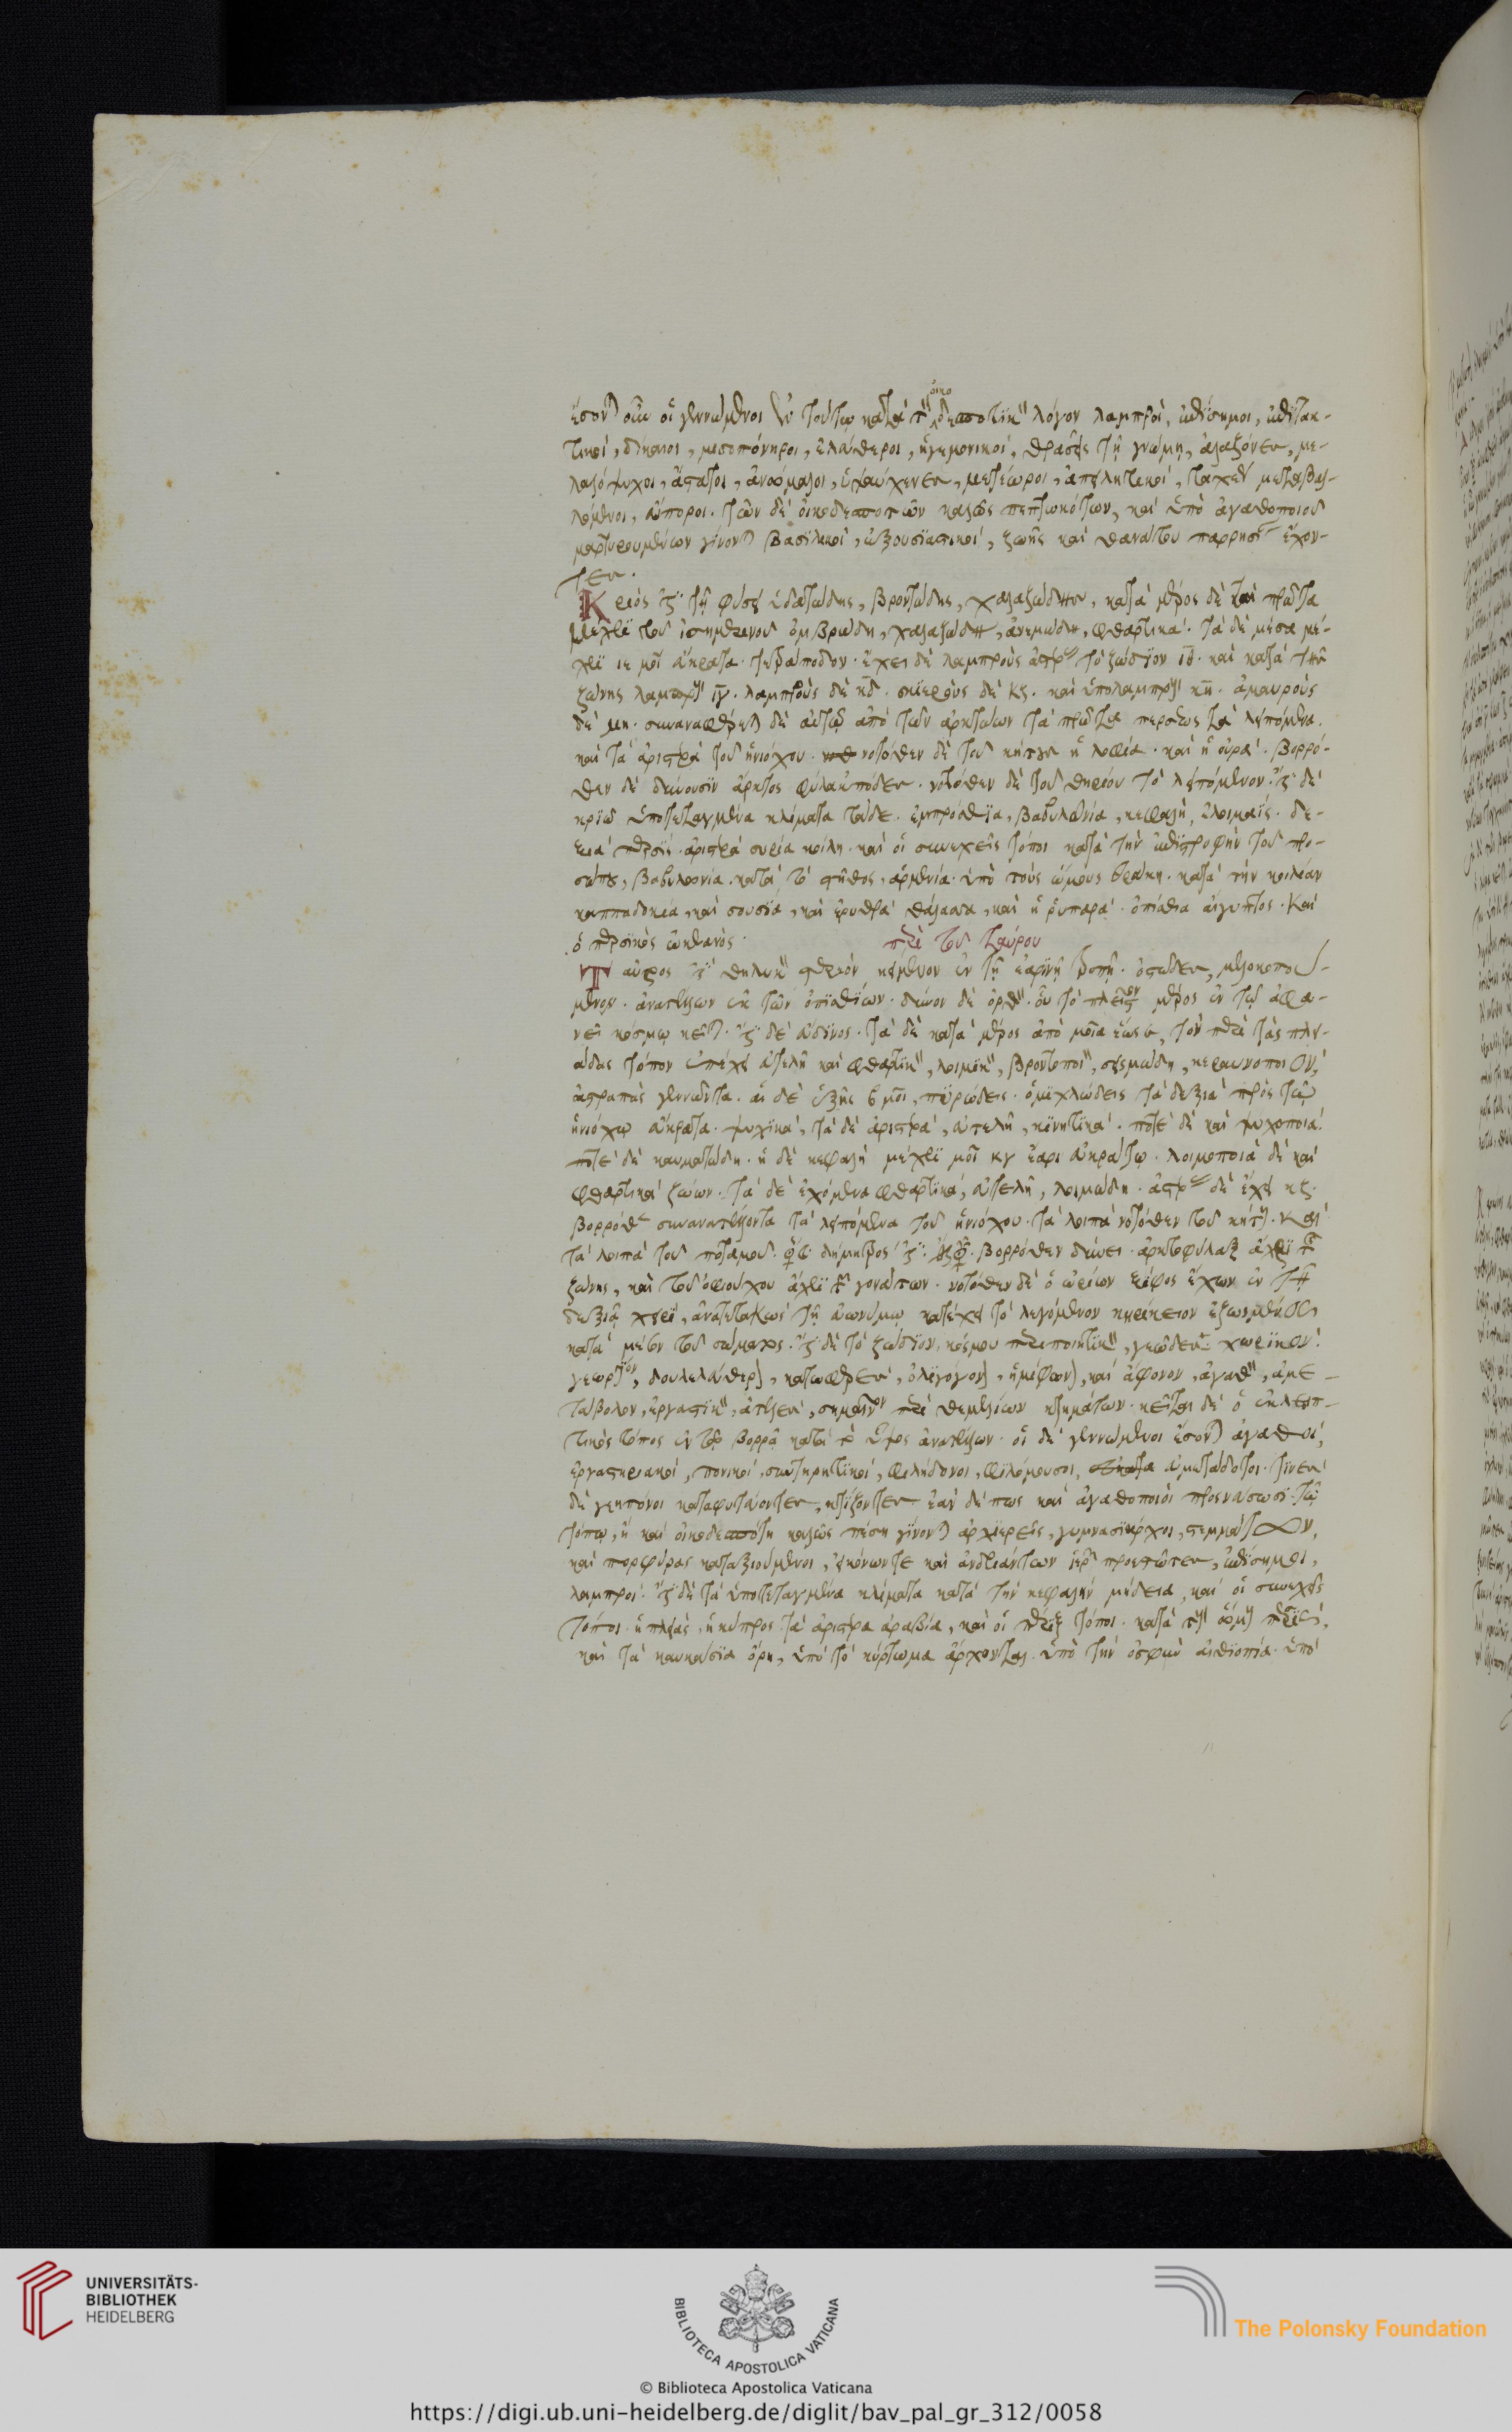 ἔσον οὖν οἱ γεννώμενοι ἐν τούτῳ κατὰ τὸν οἰκοδεσποτικὸν λόγον λαμπροὶ, ἐπίσημοι, ἐπιτακ-
τικοὶ, δίκαιοι, μισοπόνηροι, ἐλεύθεροι, ἡγεμονικοί, θρασεῖς τῇ γνώμῃ, ἀλαζόνες, με-
γαλόψυχοι, ἄστατοι, ἀνώμαλοι, ὑψαύχενες, μετέωροι, ἀπειλητικοί, ταχέως μεταβαλ-
λόμενοι, εὔποροι. τῶν δὲ οἰκοδεσποτῶν καλῶς πεπτωκότων, καὶ ὑπὸ ἀγαθοποιοῦ
μαρτυρουμένων γίνονται βασιλικοὶ, ἐξουσιαστικοί, ζωῆς καὶ θανάτου παρρησίαν ἔχον-
τες.
Κριός ἐστι τῇ φύσει ὑδατώδης, βροντώδης, χαλαζώδης, κατὰ μέρος δὲ τὰ πρῶτα
μέχρι τοῦ ἰσημερινοῦ ὀμβρώδη, χαλαζώδη, ἀνεμώδη, φθαρτικά. τὰ δὲ μέσα μέ-
χρι ιε μοι εὔκρατα. τετράποδον. ἔχει δὲ λαμπροὺς ἀστέρας τὸ ζώδιον ιδ. καὶ κατὰ τῆς
ζώνης λαμπροὺς ιγ. λαμπροὺς δὲ κδ. σκιεροὺς δὲ κζ. καὶ ὑπολάμπρους κη. ἀμαυροὺς
δὲ μη. συναναφέρει δὲ αὐτῷ ἀπὸ τῶν ἀρκτώων τὰ πρῶτα περσέως τὰ λειπόμενα.
καὶ τὰ ἀριστερὰ τοῦ ἡνιόχου. νοτόθεν δὲ τοῦ κήτους ἡ λοφία. καὶ ἡ οὐρά. βορρό-
θεν δὲ δύνουσιν ἄρκτος φύλακι πόδες. νοτόθεν δὲ τοῦ θηρίου τὸ λειπόμενον. ἐστι δὲ
κριῷ ὑποτεταγμένα κλίματα τάδε. ἐμπρόσθια, βαβυλωνία, κεφαλὴ, ἐλυμαΐς. δε-
ξιὰ περσίς. ἀριστερὰ συρία κοίλη. καὶ οἱ συνεχεῖς τόποι κατὰ τὴν ἐπιστροφὴν τοῦ προ-
σώπου, βαβυλωνία. κατὰ τὸ στῆθος, ἀρμενία. ὑπὸ τοὺς ὤμους θράκη. κατὰ τὴν κοιλίαν
καππαδοκία, καὶ σουσία, καὶ ἐρυθρὰ θάλασσα, καὶ ἡ ῥυπαρά. ὀπίσθια αἴγυπτος. καὶ
ὁ περσικὸς ὠκεανός. περὶ τοῦ ταύρου
Ταῦρός ἐστι θηλυκὸν στερεὸν κείμενον ἐν τῇ ἐαρινῇ τροπῇ. ὀστῶδες, μελοκοπού-
μενον. ἀνατέλλον ἐκ τῶν ὀπισθίων. δῦνον δὲ ὀρθόν. οὗ τὸ πλεῖστον μέρος ἐν τῷ ἀφα-
νεῖ κόσμῳ κεῖται. ἐστι δὲ εὔδινος. τὰ δὲ κατὰ μέρος ἀπὸ μοι α ἕως ς, τὸν περὶ τὰς πλει-
άδας τόπον ἐπέχει εὐτελῆ καὶ φθαρτικὸν, λοιμικὸν, βροντοποιὸν, σεισμώδη, κεραυνοποιὸν,
ἀστραπὰς γεννῶντα. αἱ δὲ ἑξῆς β μοι, πυρώδεις. ὁμιχλώδεις τὰ δεξιὰ πρὸς τῷ
ἡνιόχῳ εὔκρατα. ψυχικά, τὰ δὲ ἀριστερὰ, εὐτελῆ, κινητικά. ποτὲ δὲ καὶ ψυχοποιά.
ποτὲ δὲ καυματώδη. ἡ δὲ κεφαλὴ μέχρι μοι κγ ἔαρι εὐκράτῳ. λοιμοποιὰ δὲ καὶ
φθαρτικὰ ζώων. τὰ δὲ ἐχόμενα φθαρτικὰ, εὐτελῆ, λοιμώδη. ἀστέρας δὲ ἔχει κζ.
βορρόθεν συνανατέλλοντα τὰ λειπόμενα τοῦ ἡνιόχου. τὰ λοιπὰ νοτόθεν τοῦ κήτους. καὶ
τὰ λοιπὰ τοῦ ποταμοῦ. δήμητρος ἐστι. βορρόθεν δύνει. ἀρκτοφύλαξ ἄχρι τῆς
ζώνης, καὶ τοῦ ὀφιούχου ἄχρι τῶν γονάτων. νοτόθεν δὲ ὁ ὠρίων ξίφος ἔχων ἐν τῇ
δεξιᾷ χειρὶ, ἀνατετακὼς τῇ εὐωνύμῳ κατέχει τὸ λεγόμενον κηρύκειον ἐζωσμένος
κατὰ μέσον τοῦ σώματος. ἐστι δὲ τὸ ζώδιον, κόσμου περιποιητικὸν, γεῶδες. χωρικὸν.
γεωργὸν, δουλελεύθερον, κατωφερές, ὀλιγόγονον, ἡμίφωνον, καὶ ἄφονον, ἀγαθὸν, ἀμε-
τάβολον, ἐργαστικὸν, ἀτελές, σημαῖνον περὶ θεμελίων κτημάτων. κεῖται δὲ ὁ ἐκλειπ-
τικὸς τόπος ἐν τῷ βορρᾷ κατὰ τὸ ὕψος ἀνατέλλων. οἱ δὲ γεννώμενοι ἔσονται ἀγαθοὶ,
ἐργαστηριακοί, πονικοί, συντηρητικοί, φιλήδονοι, φιλόμουσοι, εὐμετάδοτοι. τινὲς
δὲ γηπόνοι καταφυτεύοντες, κτίζοντες ἐὰν δέ πως καὶ ἀγαθοποιοὶ προσνεύσωσι τῷ
τόπῳ, ἢ καὶ οἰκοδεσπότη καλῶς πέσῃ γίνονται ἀρχιερεῖς, γυμνασιάρχοι, στεμμάτων,
καὶ πορφύρας καταξιούμενοι, εἰκόνων τε καὶ ἀνδριάντων ἱερῶν προεστῶτες, ἐπίσημοι,
λαμπροί. ἐστι δὲ τὰ ὑποτεταγμένα κλίματα κατὰ τὴν κεφαλὴν μήδεια, καὶ οἱ συνεχεῖς
τόποι. ἡ πλειὰς, ἡ κύπρος. τὰ ἀριστερὰ ἀραβία, καὶ οἱ πέριξ τόποι. κατὰ τοὺς ὤμους περσίς,
καὶ τὰ καυκάσια ὄρη, ὑπὸ τὸ κύρτωμα ἄρχονται. ὑπὸ τὴν ὀσφὺν αἰθιοπία. ὑπὸ
UNIVERSITÄTS-
BIBLIOTHEK
HEIDELBERG
BIBLIOTECA APOSTOLICA VATICANA
The Polonsky Foundation
© Biblioteca Apostolica Vaticana
https://digi.ub.uni-heidelberg.de/diglit/bav_pal_gr_312/0058